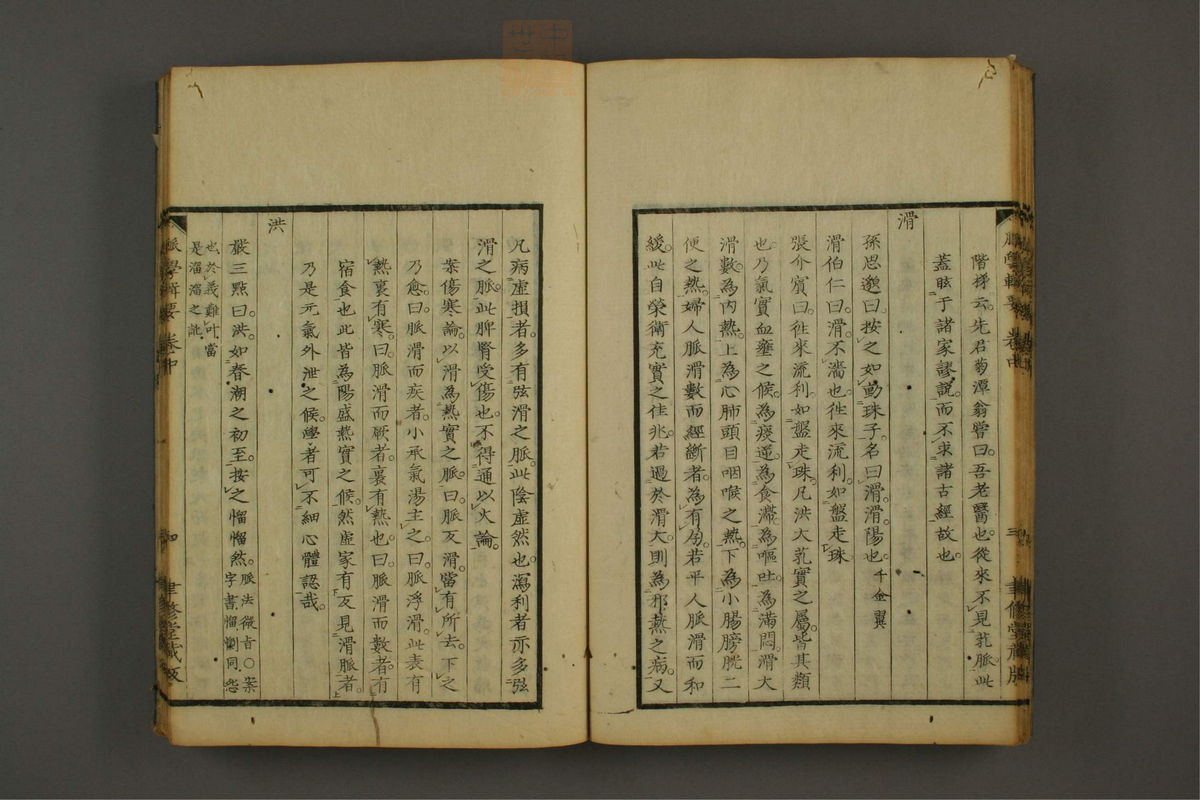 階梯云先君菊潭翁嘗曰吾老醫也從來不見芤脈此
蓋眩于諸家謬說而不求諸古經故也
滑
孫思邈曰按之如動珠子名曰滑滑陽也千金翼
滑伯仁曰滑不濇也徃來流利如盤走珠
張介賓曰徃來流利如盤走珠凡洪大芤實之屬皆其類
也乃氣實血壅之候為痰逆為食滯為嘔吐為滿悶滑大
滑數為內熱上為心肺頭目咽喉之熱下為小腸膀胱二
便之熱婦人脈滑數而經斷者為有孕若平人脈滑而和
緩此自榮衛充實之佳兆若過於滑大則為邪熱之病又
凡病虛損者多有弦滑之脈此陰虛然也瀉利者亦多弦
滑之脈此脾腎受傷也不得通以火論
案傷寒論以滑為熱實之脈曰脈反滑當有所去下之
乃愈曰脈滑而疾者小承氣湯主之曰脈浮滑此表有
熱裏有寒曰脈滑而厥者裏有熱也曰脈滑而數者有
宿食也此皆為陽盛熱實之候然虛家有反見滑脈者
乃是元氣外泄之候學者可不細心體認哉
洪
嚴三點曰洪如春潮之初至按之慆慆然脈法微旨○案
字書慆懰同怨
也於義難叶當
是滔滔之訛
脈學輯要 卷中
聿修堂藏版